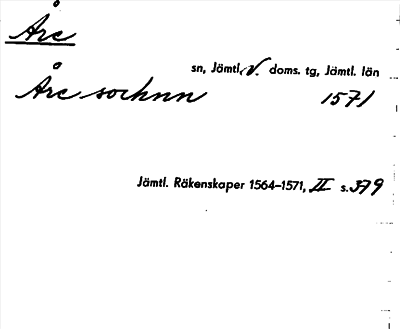 Åre
sn, Jämtl. V. doms. tg, Jämtl. län
Åre sochnn 1571
Jämtl. Räkenskaper 1564-1571, II s. 379